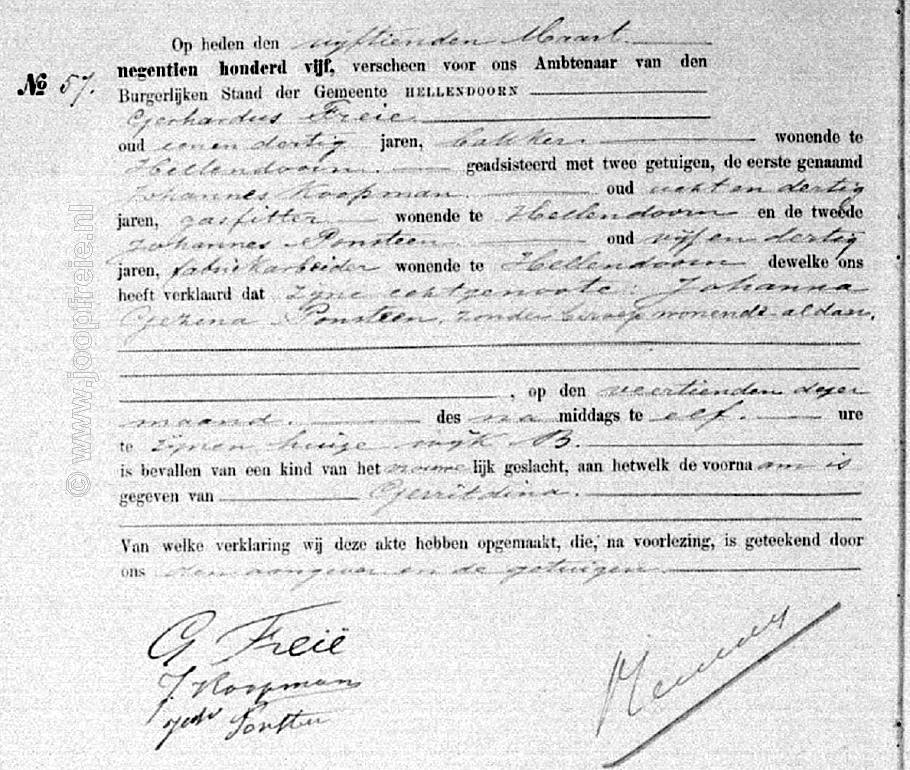 Op heden den vijftienden Maart
negentien honderd vijf, verscheen voor ons Ambtenaar van den
No 57. Burgerlijken Stand der Gemeente HELLENDOORN
Gerhardus Freie
oud eenen dertig jaren, bakker wonende te
Hellendoorn. geadsisteerd met twee getuigen, de eerste genaamd
Johannes Koopman oud acht en dertig
jaren, gasfitter wonende te Hellendoorn en de tweede
Johannes Ponsteen oud vijf en dertig
jaren, fabriekarbeider wonende te Hellendoorn dewelke ons
heeft verklaard dat zijne echtgenoote: Johanna
Gezina Ponsteen, zonder beroep wonende aldaar,
, op den veertienden dezer
maand. des na middags te elf. ure
te zijnen huize wijk B.
is bevallen van een kind van het vrouwelijk geslacht, aan hetwelk de voornaam is
gegeven van Gerritdina.
Van welke verklaring wij deze akte hebben opgemaakt, die, na voorlezing, is geteekend door
ons den aangever en de getuigen
G Freië
J Koopman
© www.joopfreie.nl